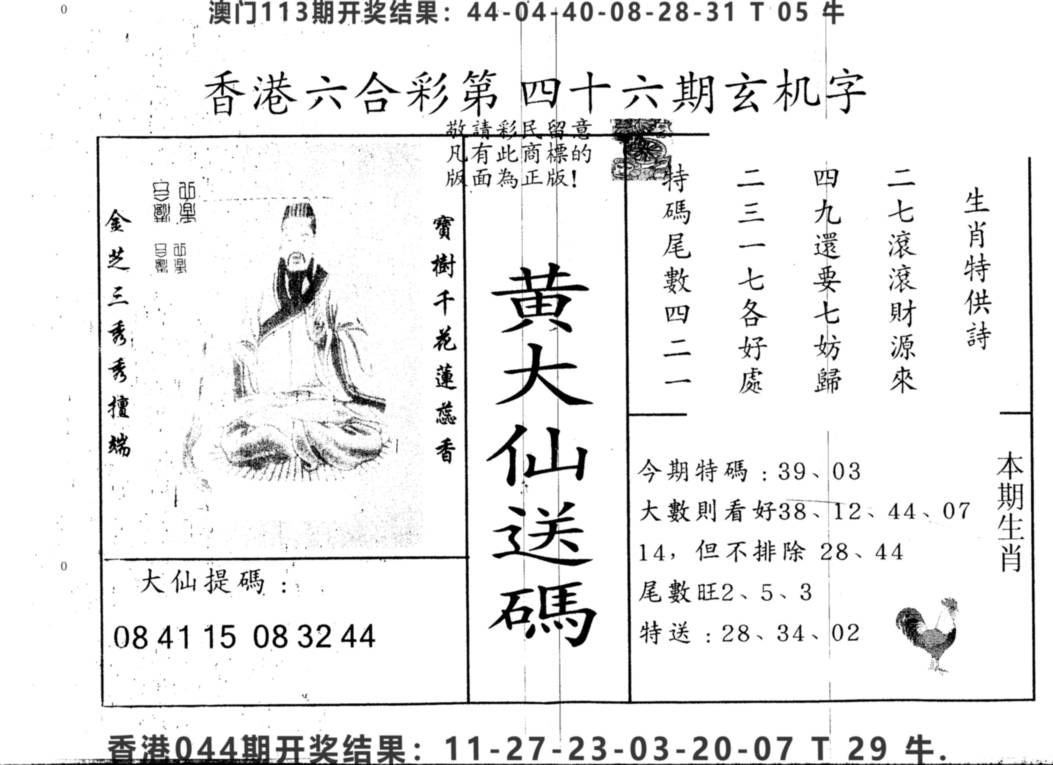 0
澳门113期开奖结果：44-04-40-08-28-31 T 05 牛
香港六合彩第 四十六期玄机字
敬請彩民留意
凡有此商標的
版面為正版!
生肖特供詩
二七滾滾財源來
四九還要七妨歸
二三一七各好處
特碼尾數四二一
寶樹千花蓮蕊香
金芝三秀秀擅端
黃大仙送碼
本期生肖
今期特碼：39、03
大數則看好38、12、44、07
14，但不排除 28、44
尾數旺2、5、3
特送：28、34、02
0
大仙提碼：
08 41 15 08 32 44
香港044期开奖结果：11-27-23-03-20-07 T 29 牛.